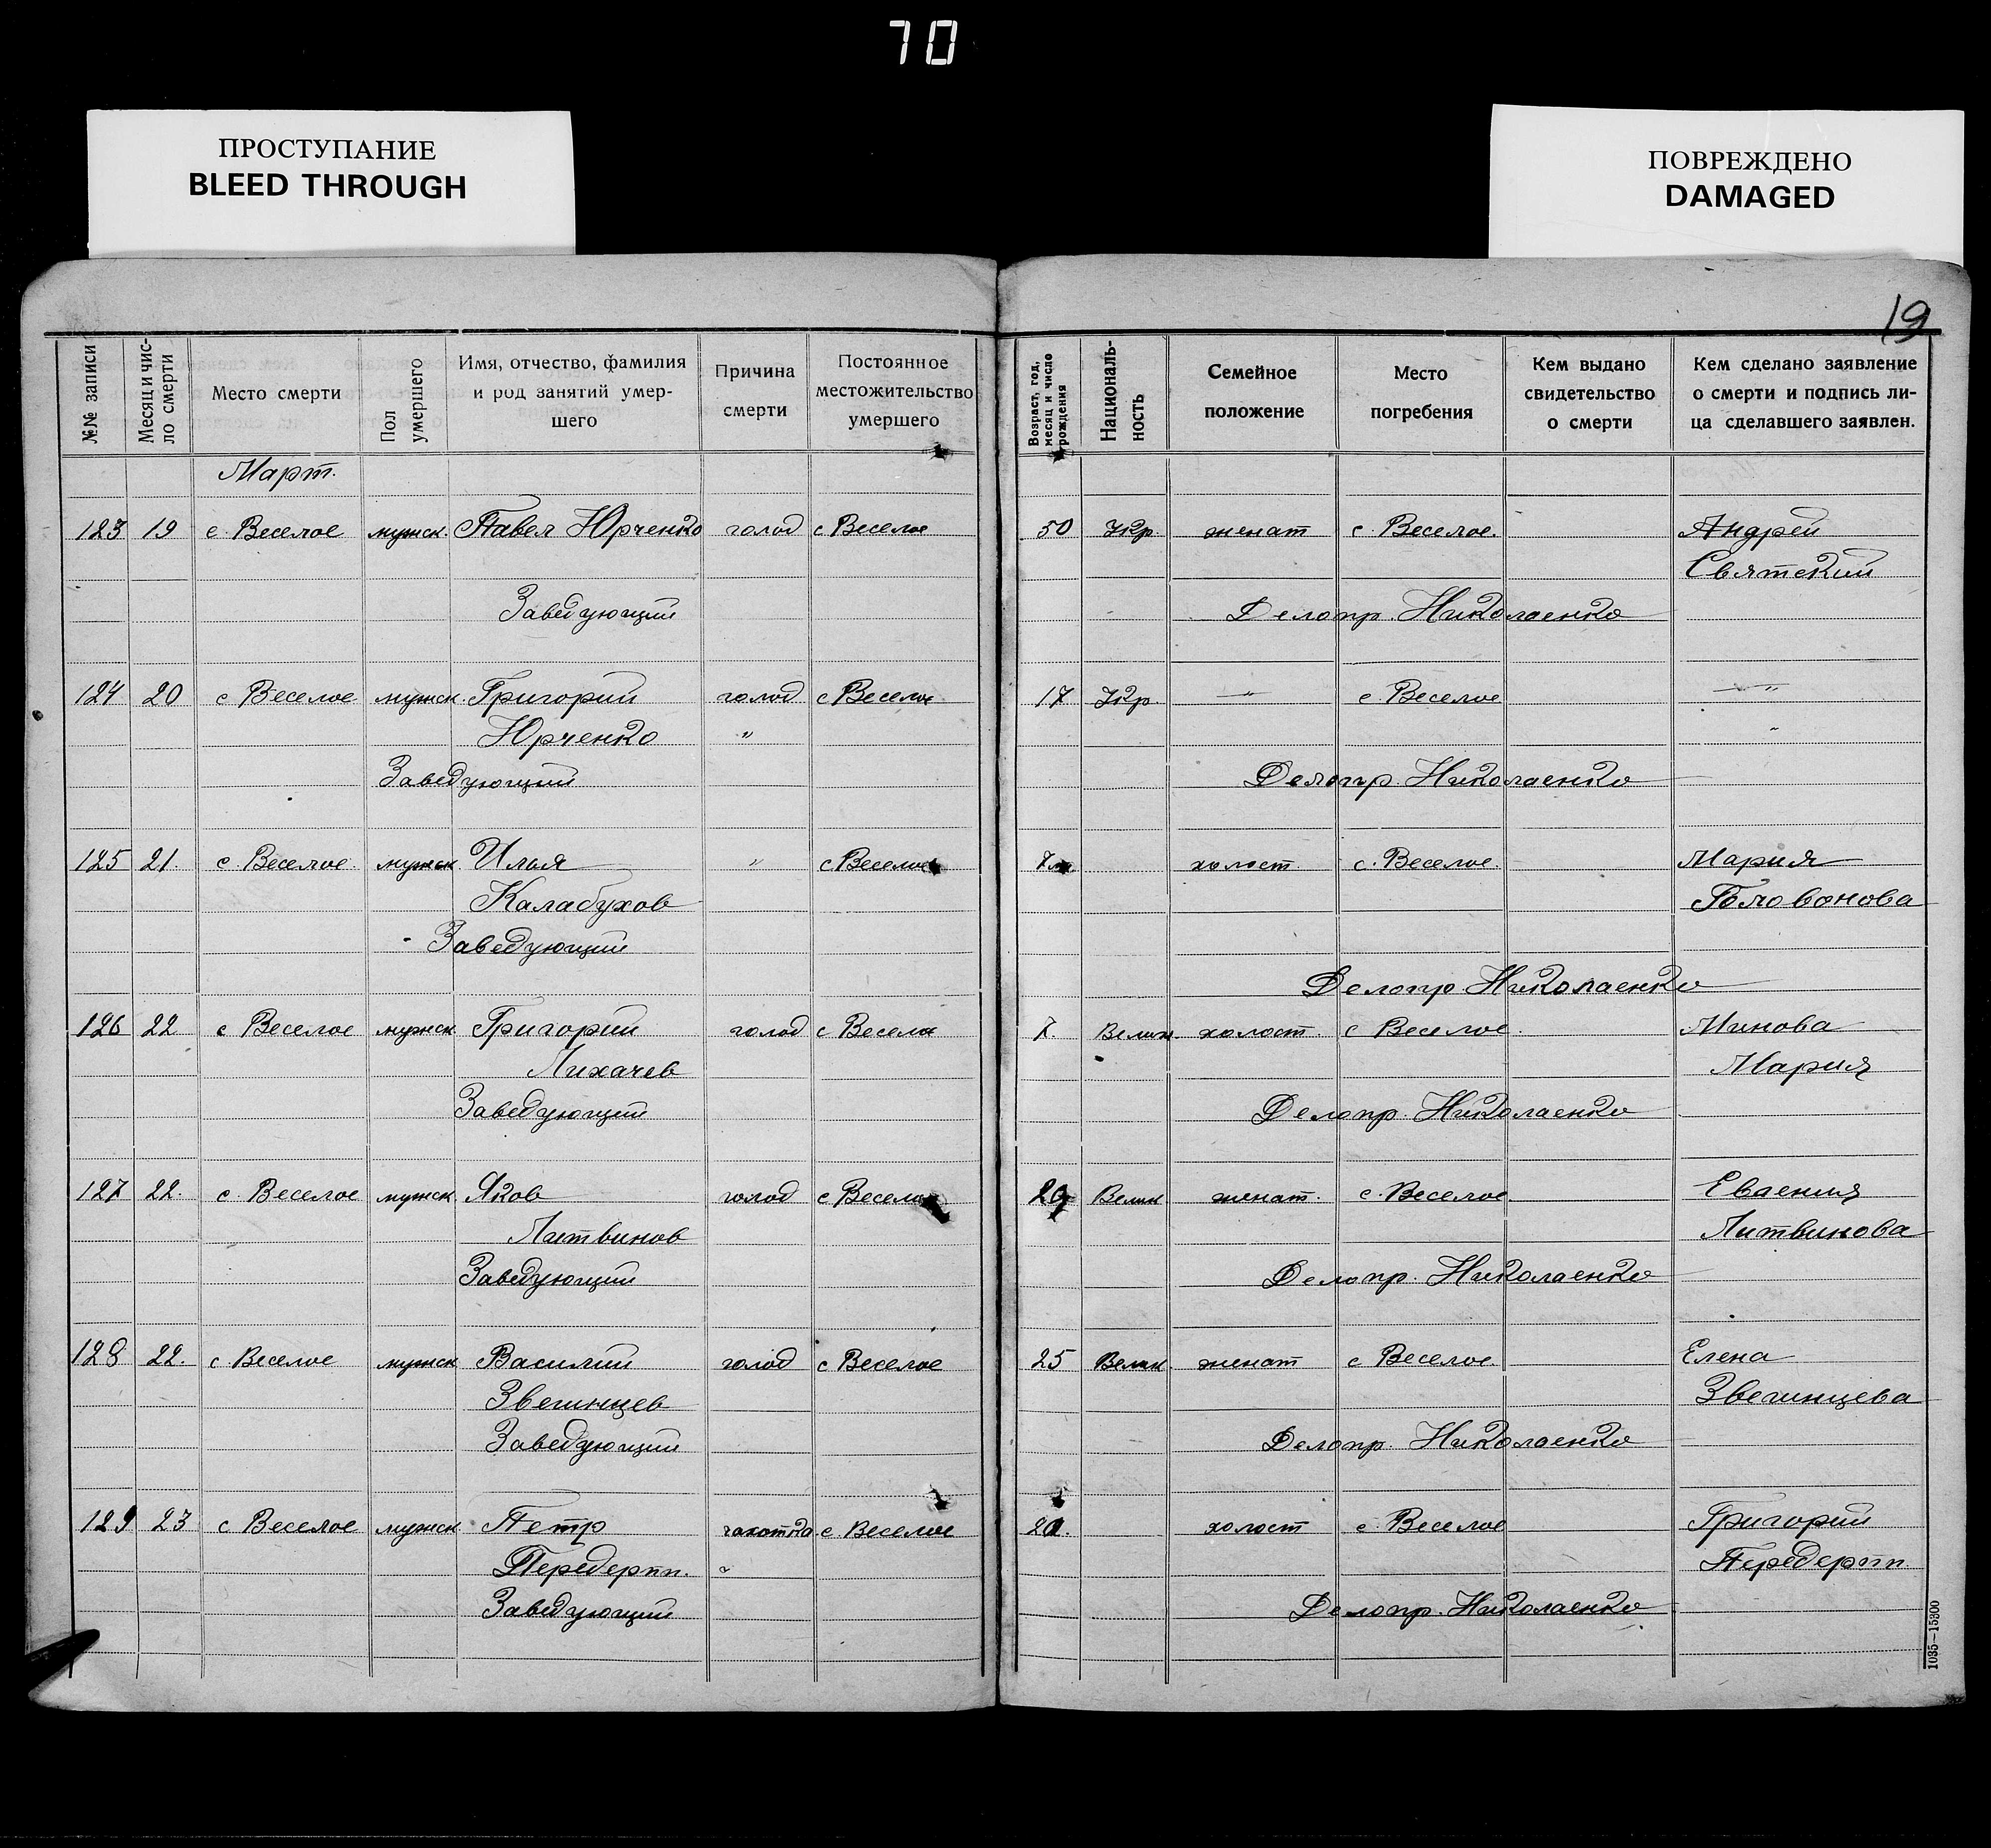 70
ПРОСТУПАНИЕ
BLEED THROUGH
ПОВРЕЖДЕНО
DAMAGED
19
№№ записи
Месяц и чис-
ло смерти
Место смерти
Пол
умершего
Имя, отчество, фамилия
и род занятий умер-
шего
Причина
смерти
Постоянное
местожительство
умершего
Возраст, год,
месяц и число
рождения
Националь-
ность
Семейное
положение
Место
погребения
Кем выдано
свидетельство
о смерти
Кем сделано заявление
о смерти и подпись ли-
ца сделавшего заявлен.
Март.
123 19 с. Веселое мужск. Павел Юрченко голод с Веселое 50 Укр. женат с. Веселое. Андрей
Святский
Заведующий Делопр. Николаенко
124 20 с Веселое мужск. Григорий голод с Веселое 17 Укр. — " — с. Веселое — " —
Юрченко " "
Заведующий Делопр. Николаенко
125 21. с. Веселое мужск Илья " с Веселое 7 холост с. Веселое. Мария
Калабухов Головонова
Заведующий
Делопр Николаенко
126 22 с Веселое мужск Григорий голод с Веселое 7. Велик. холост. с Веселое. Минова
Лихачев Мария
Заведующий Делопр. Николаенко
127 22. с. Веселое мужск Яков голод с Веселое 29 Велик женат. с. Веселое
Литвинов Литвинова
Заведующий Делопр. Николаенко
128 22. с. Веселое мужск Василий голод с Веселое 25 Велик женат с Веселое. Елена
Звегинцев Звегинцева
Заведующий Делопр. Николаенко
129 23 с Веселое мужск Петр с. Веселое холост с. Веселое Григорий
Передерпп. " Передерпп.
Заведующий Делопр. Николаенко
1035—15300